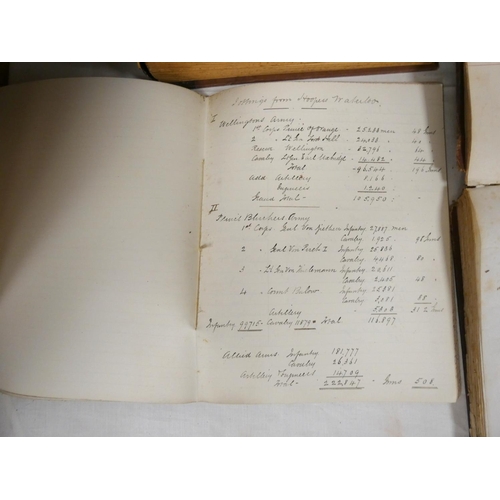 Jottings from Hoopers Waterloo
I Wellingtons Army
1st Corps Prince of Orange - 25233 men 48 Guns
2 " Lt Gen Lord Hill - 24,033 " 40
Reserve Wellington - 32,796 " 64
Cavalry Lt Gen Earl Uxbridge 14,482 " 44
Total - 96,544 196 Guns
Add Artillery 8,166
Engineers 1240
Grand Total - 105,950
II
Blüchers Army
1st Corps Genl Von Ziethen Infantry 27887 men
Cavalry 1,925 - 96 Guns
2 " Genl Von Pirch I Infantry 25,836
Cavalry 4,468 80
3 " Lt Gen Von Thielemann Infantry 20,611
Cavalry 2,405 48
4 " Count Bulow Infantry 25,381
Cavalry 3,081 88
Artillery 5,303 312 Guns
Infantry 99715 - Cavalry 11879 Total 116,897
Allied Armies Infantry 181,777
Cavalry 26,361
Artillery & Engineers 14709
Total - 222,847 Guns 508